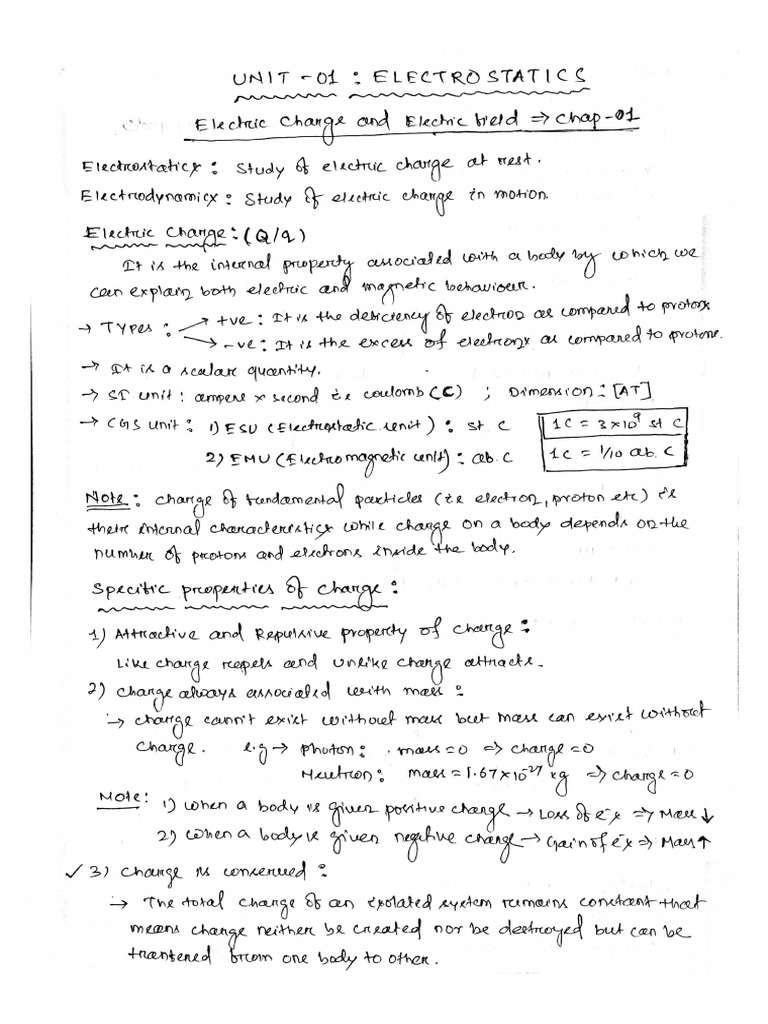 UNIT - 01 : ELECTROSTATICS
Electric Charge and Electric field ⇒ Chap-01
Electrostatics : Study of electric charge at rest.
Electrodynamics : Study of electric charge in motion.
Electric Charge : (Q/q)
It is the internal property associated with a body by which we
can explain both electric and magnetic behaviour.
→ Types : +ve : It is the deficiency of electron as compared to protons
-ve : It is the excess of electrons as compared to protons.
→ It is a scalar quantity.
→ SI unit : ampere × second ie coulomb (C) ; Dimension : [AT]
→ CGS unit : 1) ESU (Electrostatic unit) : st C
1C = 3×10⁹ st C
2) EMU (Electromagnetic unit) : ab. C
1C = 1/10 ab. C
Note : charge of fundamental particles (ie electron, proton etc) is
their internal characteristics while charge on a body depends on the
number of protons and electrons inside the body.
Specific properties of charge :
1) Attractive and Repulsive property of charge :
Like charge repels and unlike charge attracts.
2) Charge always associated with mass :
→ Charge cann't exist without mass but mass can exist without
charge. e.g → Photon : mass = 0 ⇒ charge = 0
Neutron : mass = 1.67×10⁻²⁷ kg ⇒ charge = 0
Note : 1) When a body is given positive charge → Loss of e⁻s ⇒ Mass ↓
2) When a body is given negative charge → Gain of e⁻s ⇒ Mass ↑
✓ 3) Charge is conserved :
→ The total charge of an isolated system remains constant that
means charge neither be created nor be destroyed but can be
transfered from one body to other.